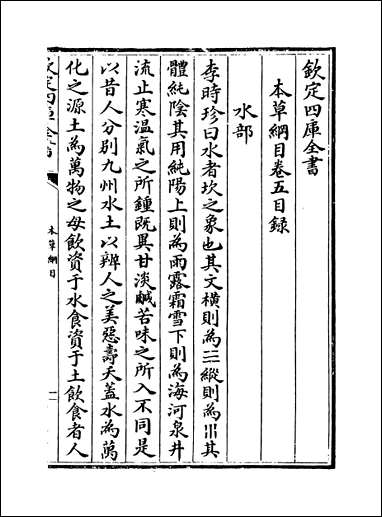 欽定四庫全書
本草綱目卷五目録
水部
李時珍曰水者坎之象也其文横則為☵縱則為川其
體純陰其用純陽上則為雨露霜雪下則為海河泉井
流止寒温氣之所鍾既異甘淡鹹苦味之所入不同是
以昔人分别九州水土以辨人之美惡壽夭蓋水為萬
化之源土為萬物之母飲資于水食資于土飲食者人
欽定四庫全書
本草綱目